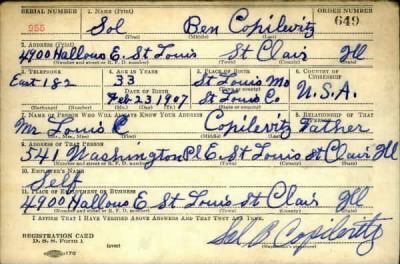 SERIAL NUMBER 1. NAME (Print) ORDER NUMBER
955 Sol Ben Copilevitz 649
(First) (Middle) (Last)
2. ADDRESS (Print)
4900 Hallows E. St Louis St Clair Ill
(Number and street or R. F. D. number) (Town) (County) (State)
3. TELEPHONE 4. AGE IN YEARS 5. PLACE OF BIRTH 6. COUNTRY OF CITIZENSHIP
East 182 33 St Louis Mo U.S.A.
DATE OF BIRTH (Town or county)
Feb 23 1907 St Louis Co
(Exchange) (Number) (Mo.) (Day) (Yr.) (State or country)
7. NAME OF PERSON WHO WILL ALWAYS KNOW YOUR ADDRESS 8. RELATIONSHIP OF THAT PERSON
Mr Louis Copilevitz Father
(Mr., Mrs., Miss) (First) (Middle) (Last)
9. ADDRESS OF THAT PERSON
541 Washington Pl E St Louis St Clair Ill
(Number and street or R. F. D. number) (Town) (County) (State)
10. EMPLOYER'S NAME
Self
11. PLACE OF EMPLOYMENT OR BUSINESS
4900 Hallows E St Louis St Clair Ill
(Number and street or R. F. D. number) (Town) (County) (State)
I AFFIRM THAT I HAVE VERIFIED ABOVE ANSWERS AND THAT THEY ARE TRUE.
REGISTRATION CARD
D. S. S. Form 1 (over) Sol B Copilevitz